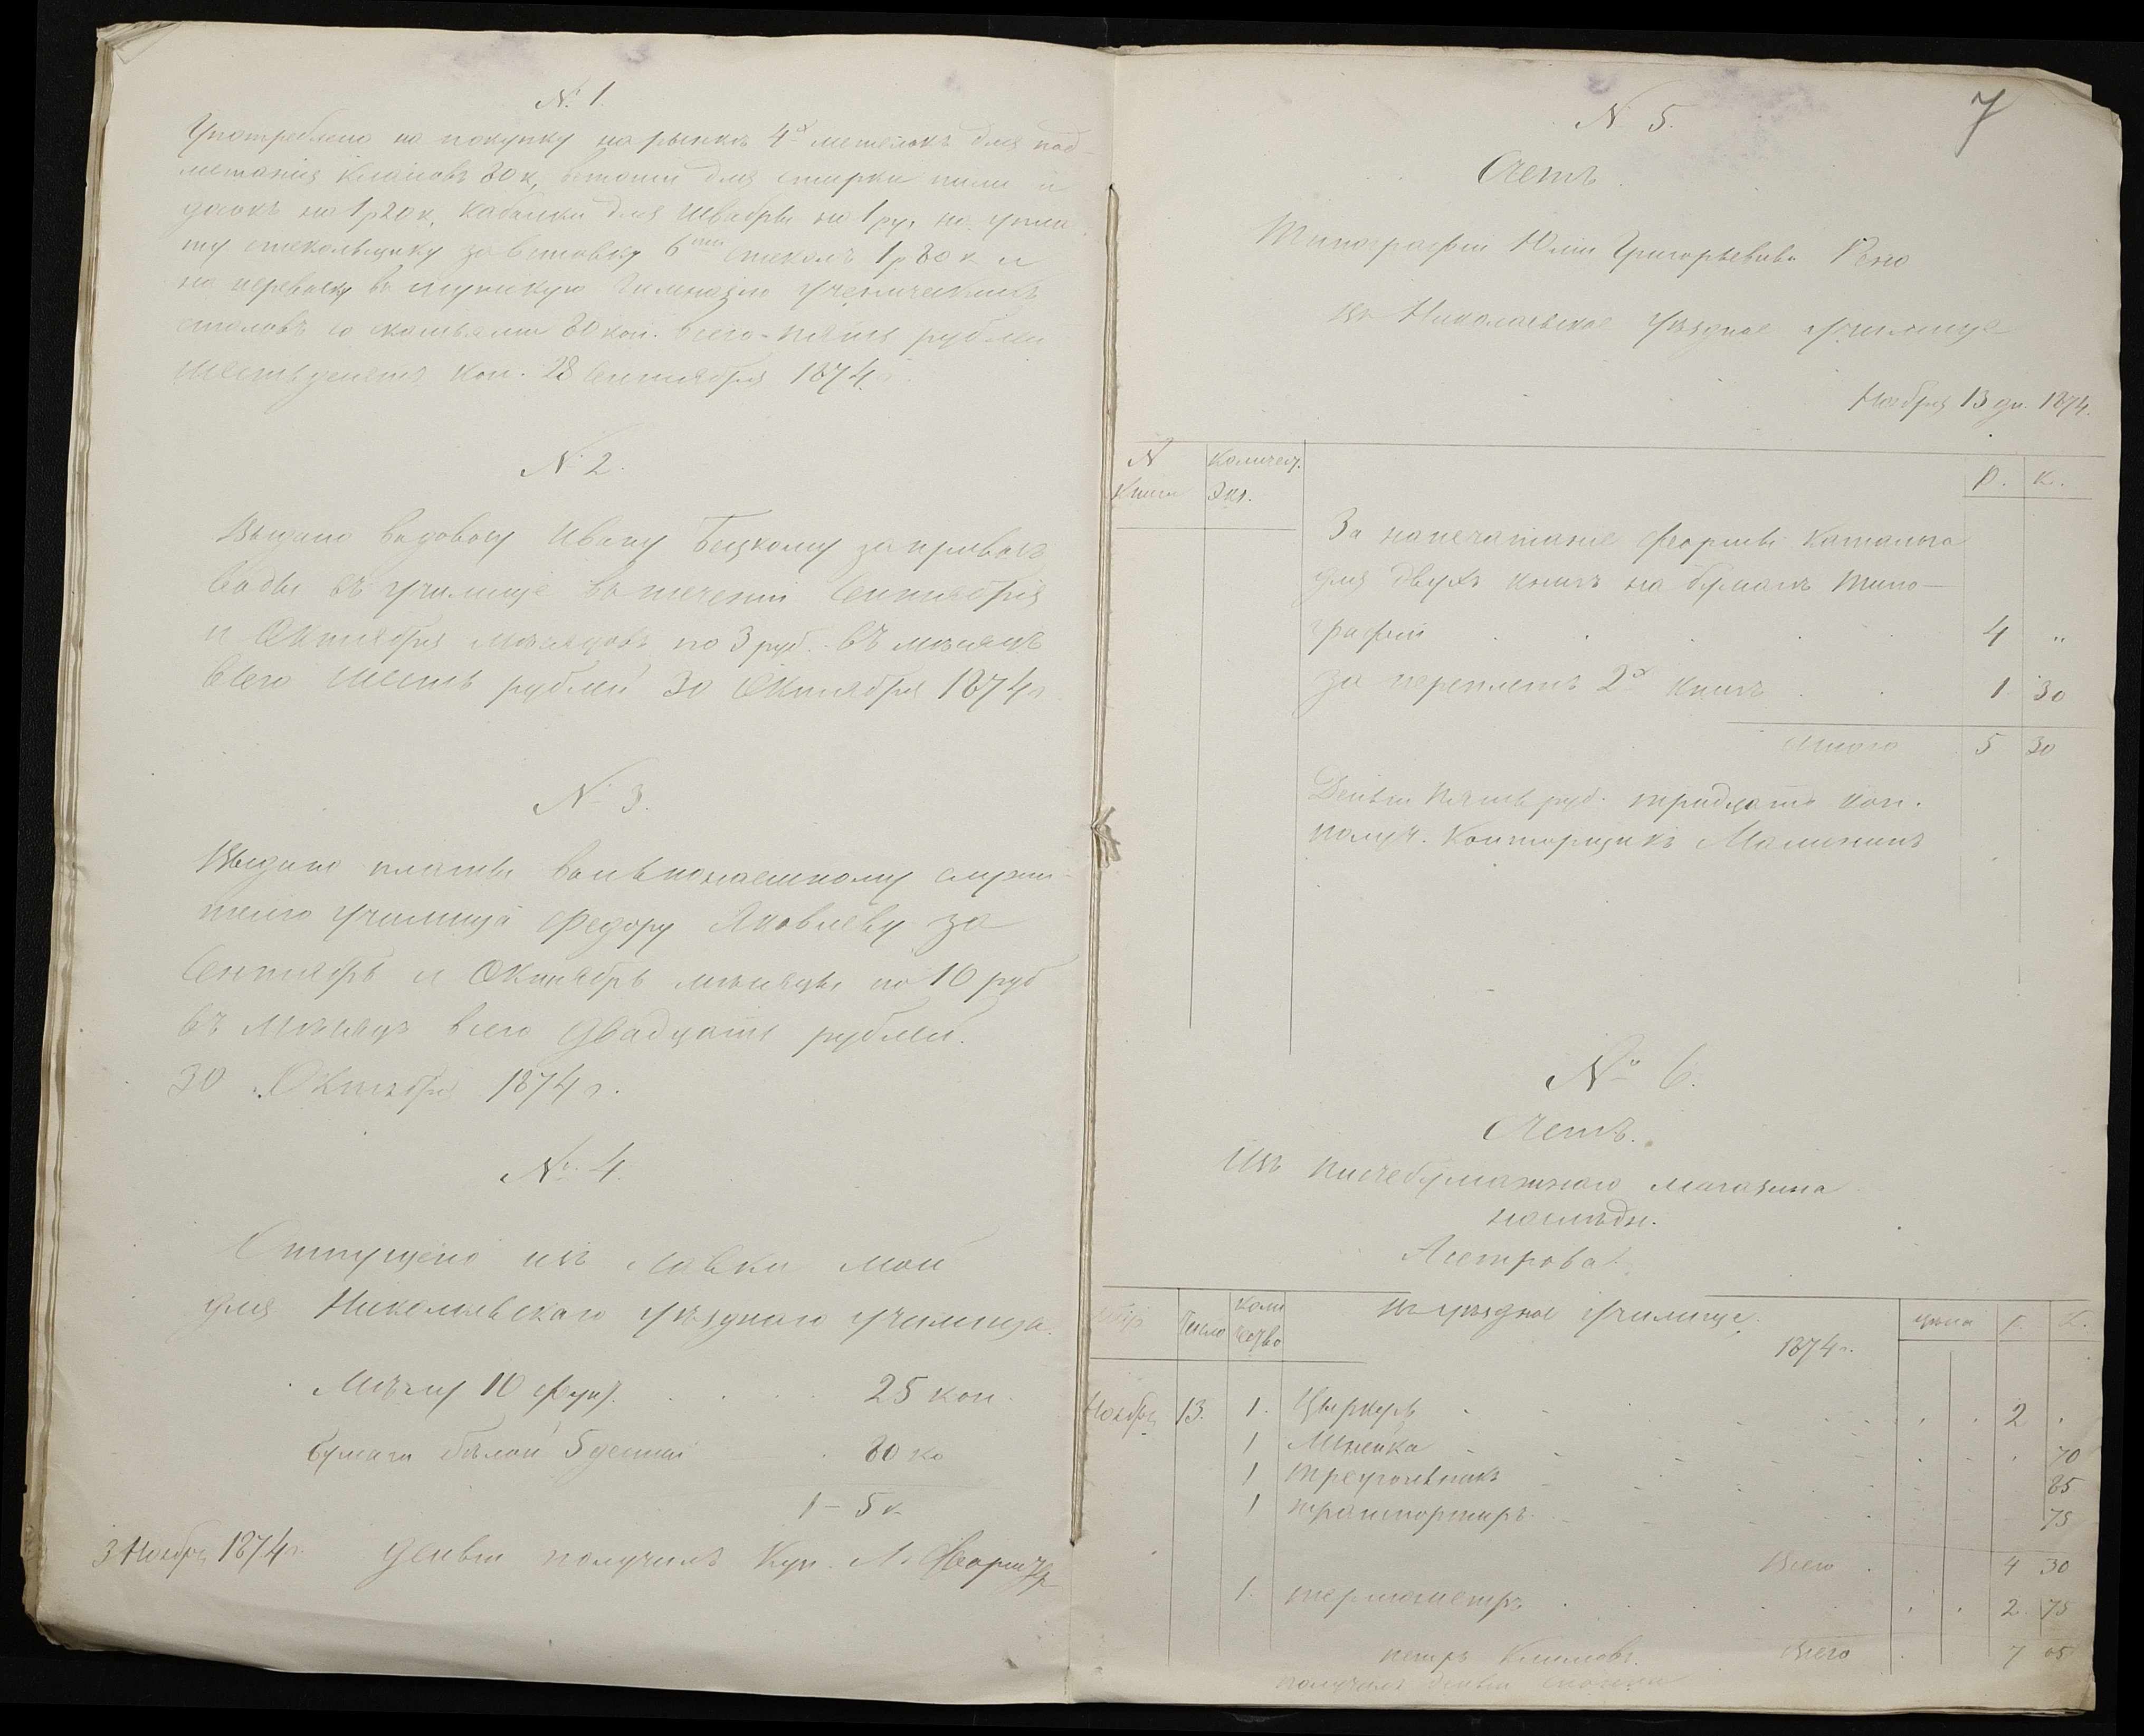 № 1.
Употреблено на покупку на рынкѣ 4х метелокъ для под-
метанія классовъ 80 к, ветоши для стирки пыли и
досокъ на 1 р 20 к, для швабры на 1 руб, на упла-
ту стекольщику за вставку 6ти стеколъ 1 р 80 к и
на перевозку въ Гимназію ученическихъ
столовъ со скамьями 80 коп. всего - пять рублей
шестьдесятъ коп. 28 Сентября 1874 г.
№ 2.
Выдано водовозу Ивану Бецкому за привозъ
воды въ училище въ теченіи Сентября
и Октября мѣсяцовъ по 3 руб. въ мѣсяцъ
всего шесть рублей 30 Октября 1874 г
№ 3.
Выдано платы вольнонаемному служи-
телю училища Федору Яковлеву за
Сентябрь и Октябрь мѣсяцы по 10 руб
въ мѣсяцъ всего двадцать рублей.
30 Октября 1874 г.
№ 4.
Отпущено изъ лавки моей
для Николаевскаго уѣзднаго училища.
Мѣлу 10 фун. 25 коп.
бумаги бѣлой 5 дестей 80 ко
1 - 5 к
3 Ноября 1874 г. деньги получилъ Куп.
7
№ 5.
Счетъ
Типографіи Юліи Григорьевны Рено
въ Николаевское уѣздное училище
Ноября 13 дн. 1874.
№ Количест. Р. К.
книги Экз.
За напечатаніе формы каталога
для двухъ книгъ на бумагѣ типо-
графіи 4 "
за переплетъ 2х книгъ 1 30
Итого 5 30
Деньги пять руб. тридцать коп.
получ. Конторщикъ Малининъ
№ 6.
Счетъ.
Изъ писчебумажнаго магазина
наслѣдн.
Въ уѣздное училище. 1874 г.
Число Коли чество цѣна Р. К.
Ноября 13. 1. Циркуль 2
1 Линейка 70
1 треугольникъ 85
1 транспортиръ 75
Всего 4 30
1. термометръ 2 75
Петръ Климовъ. Всего 7 05
получилъ деньги сполна